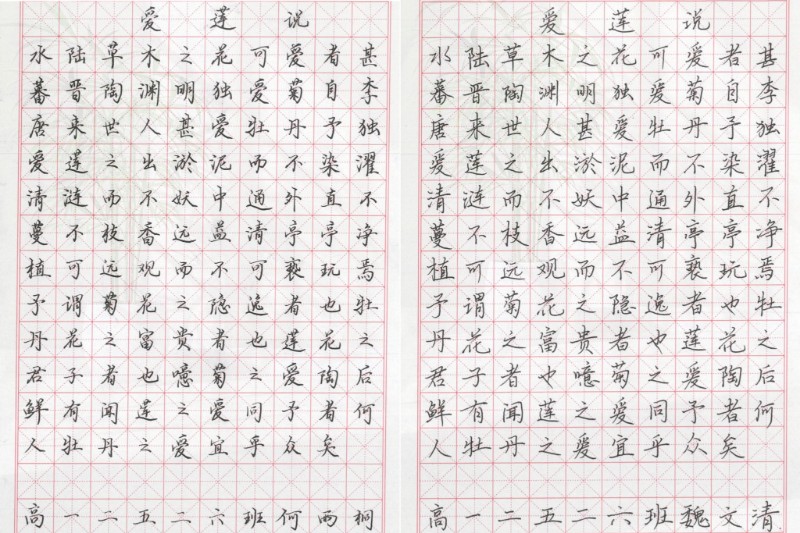 爱莲说
水陆草木之花可爱者甚
蕃晋陶渊明独爱菊自李
唐来世人甚爱牡丹予独
爱莲之出淤泥而不染濯
清涟而不妖中通外直不
蔓不枝香远益清亭亭净
植可远观而不可亵玩焉
予谓菊花之隐逸者也牡
丹花之富贵者也莲花之
君子者也噫菊之爱陶后
鲜有闻莲之爱同予者何
人牡丹之爱宜乎众矣
高一二五二六班何雨桐
爱莲说
水陆草木之花可爱者甚
蕃晋陶渊明独爱菊自李
唐来世人甚爱牡丹予独
爱莲之出淤泥而不染濯
清涟而不妖中通外直不
蔓不枝香远益清亭亭净
植可远观而不可亵玩焉
予谓菊花之隐逸者也牡
丹花之富贵者也莲花之
君子者也噫菊之爱陶后
鲜有闻莲之爱同予者何
人牡丹之爱宜乎众矣
高一二五二六班魏文清